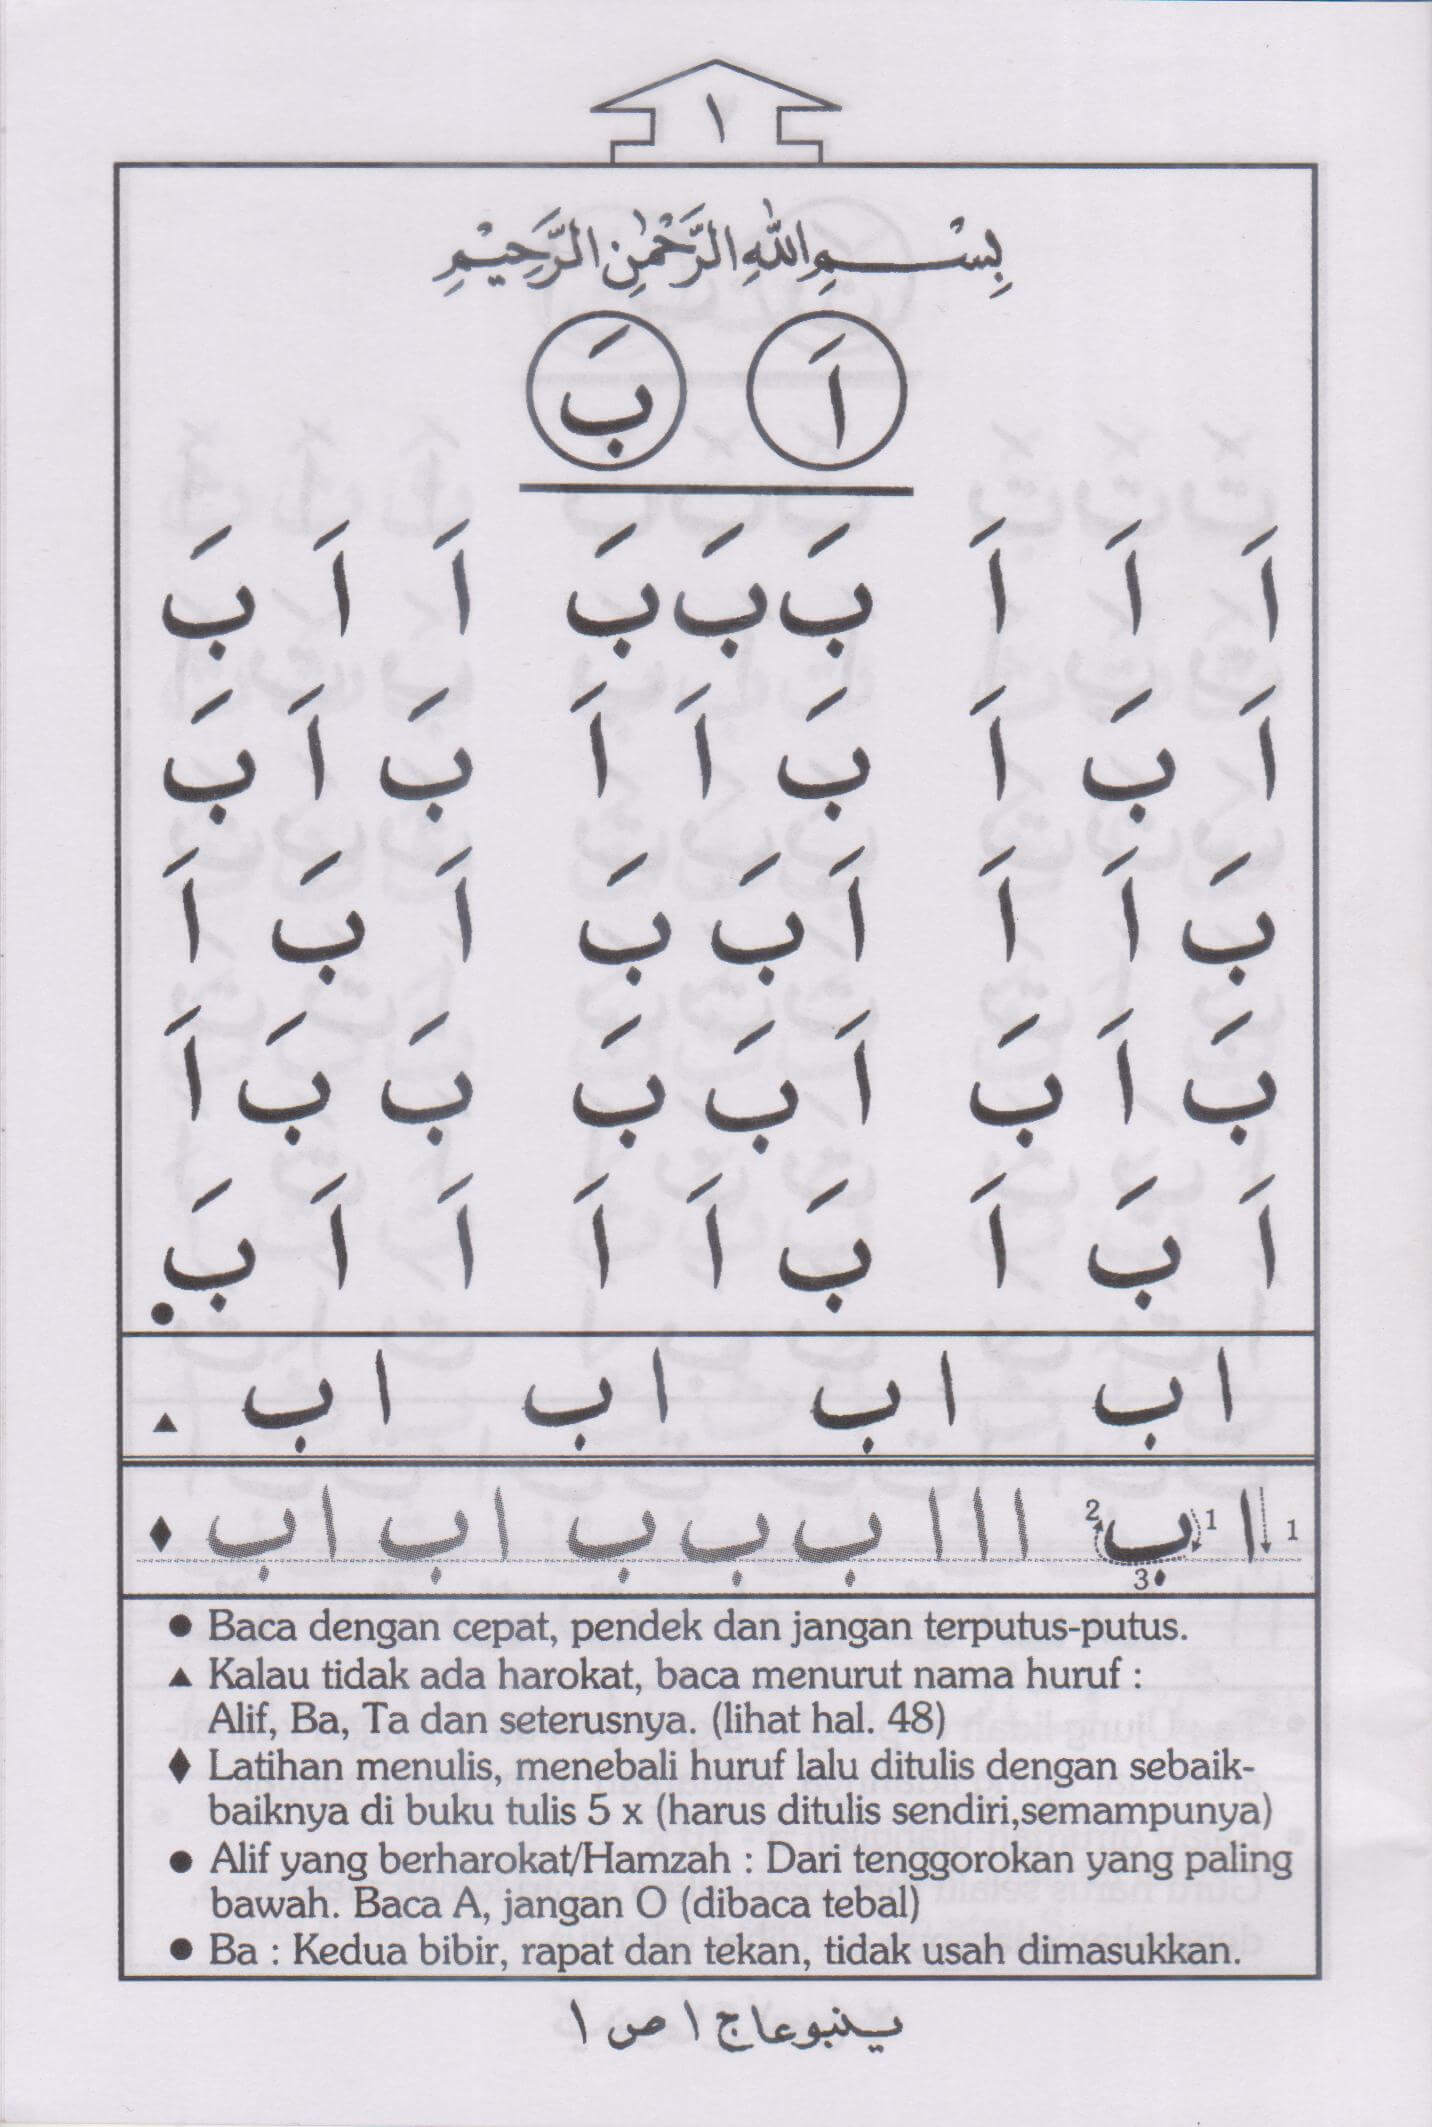 ١
بِسْــــمِ اللّٰهِ الرَّحْمٰنِ الرَّحِيْمِ
اَ بَ
اَ اَ اَ بَ بَ بَ اَ اَ بَ
اَ بَ اَ بَ اَ اَ بَ اَ بَ
بَ اَ اَ اَ بَ بَ اَ بَ اَ
بَ اَ بَ اَ بَ بَ بَ بَ اَ
اَ بَ اَ بَ اَ اَ اَ اَ بَ
ا ب ا ب ا ب ا ب
1 ا 1 2 3 ب ا ا ا ب ب ب ا ب ا ب
● Baca dengan cepat, pendek dan jangan terputus-putus.
▲ Kalau tidak ada harokat, baca menurut nama huruf :
Alif, Ba, Ta dan seterusnya. (lihat hal. 48)
♦ Latihan menulis, menebali huruf lalu ditulis dengan sebaik-
baiknya di buku tulis 5 x (harus ditulis sendiri,semampunya)
● Alif yang berharokat/Hamzah : Dari tenggorokan yang paling
bawah. Baca A, jangan O (dibaca tebal)
● Ba : Kedua bibir, rapat dan tekan, tidak usah dimasukkan.
ينبوعا ج ١ ص ١